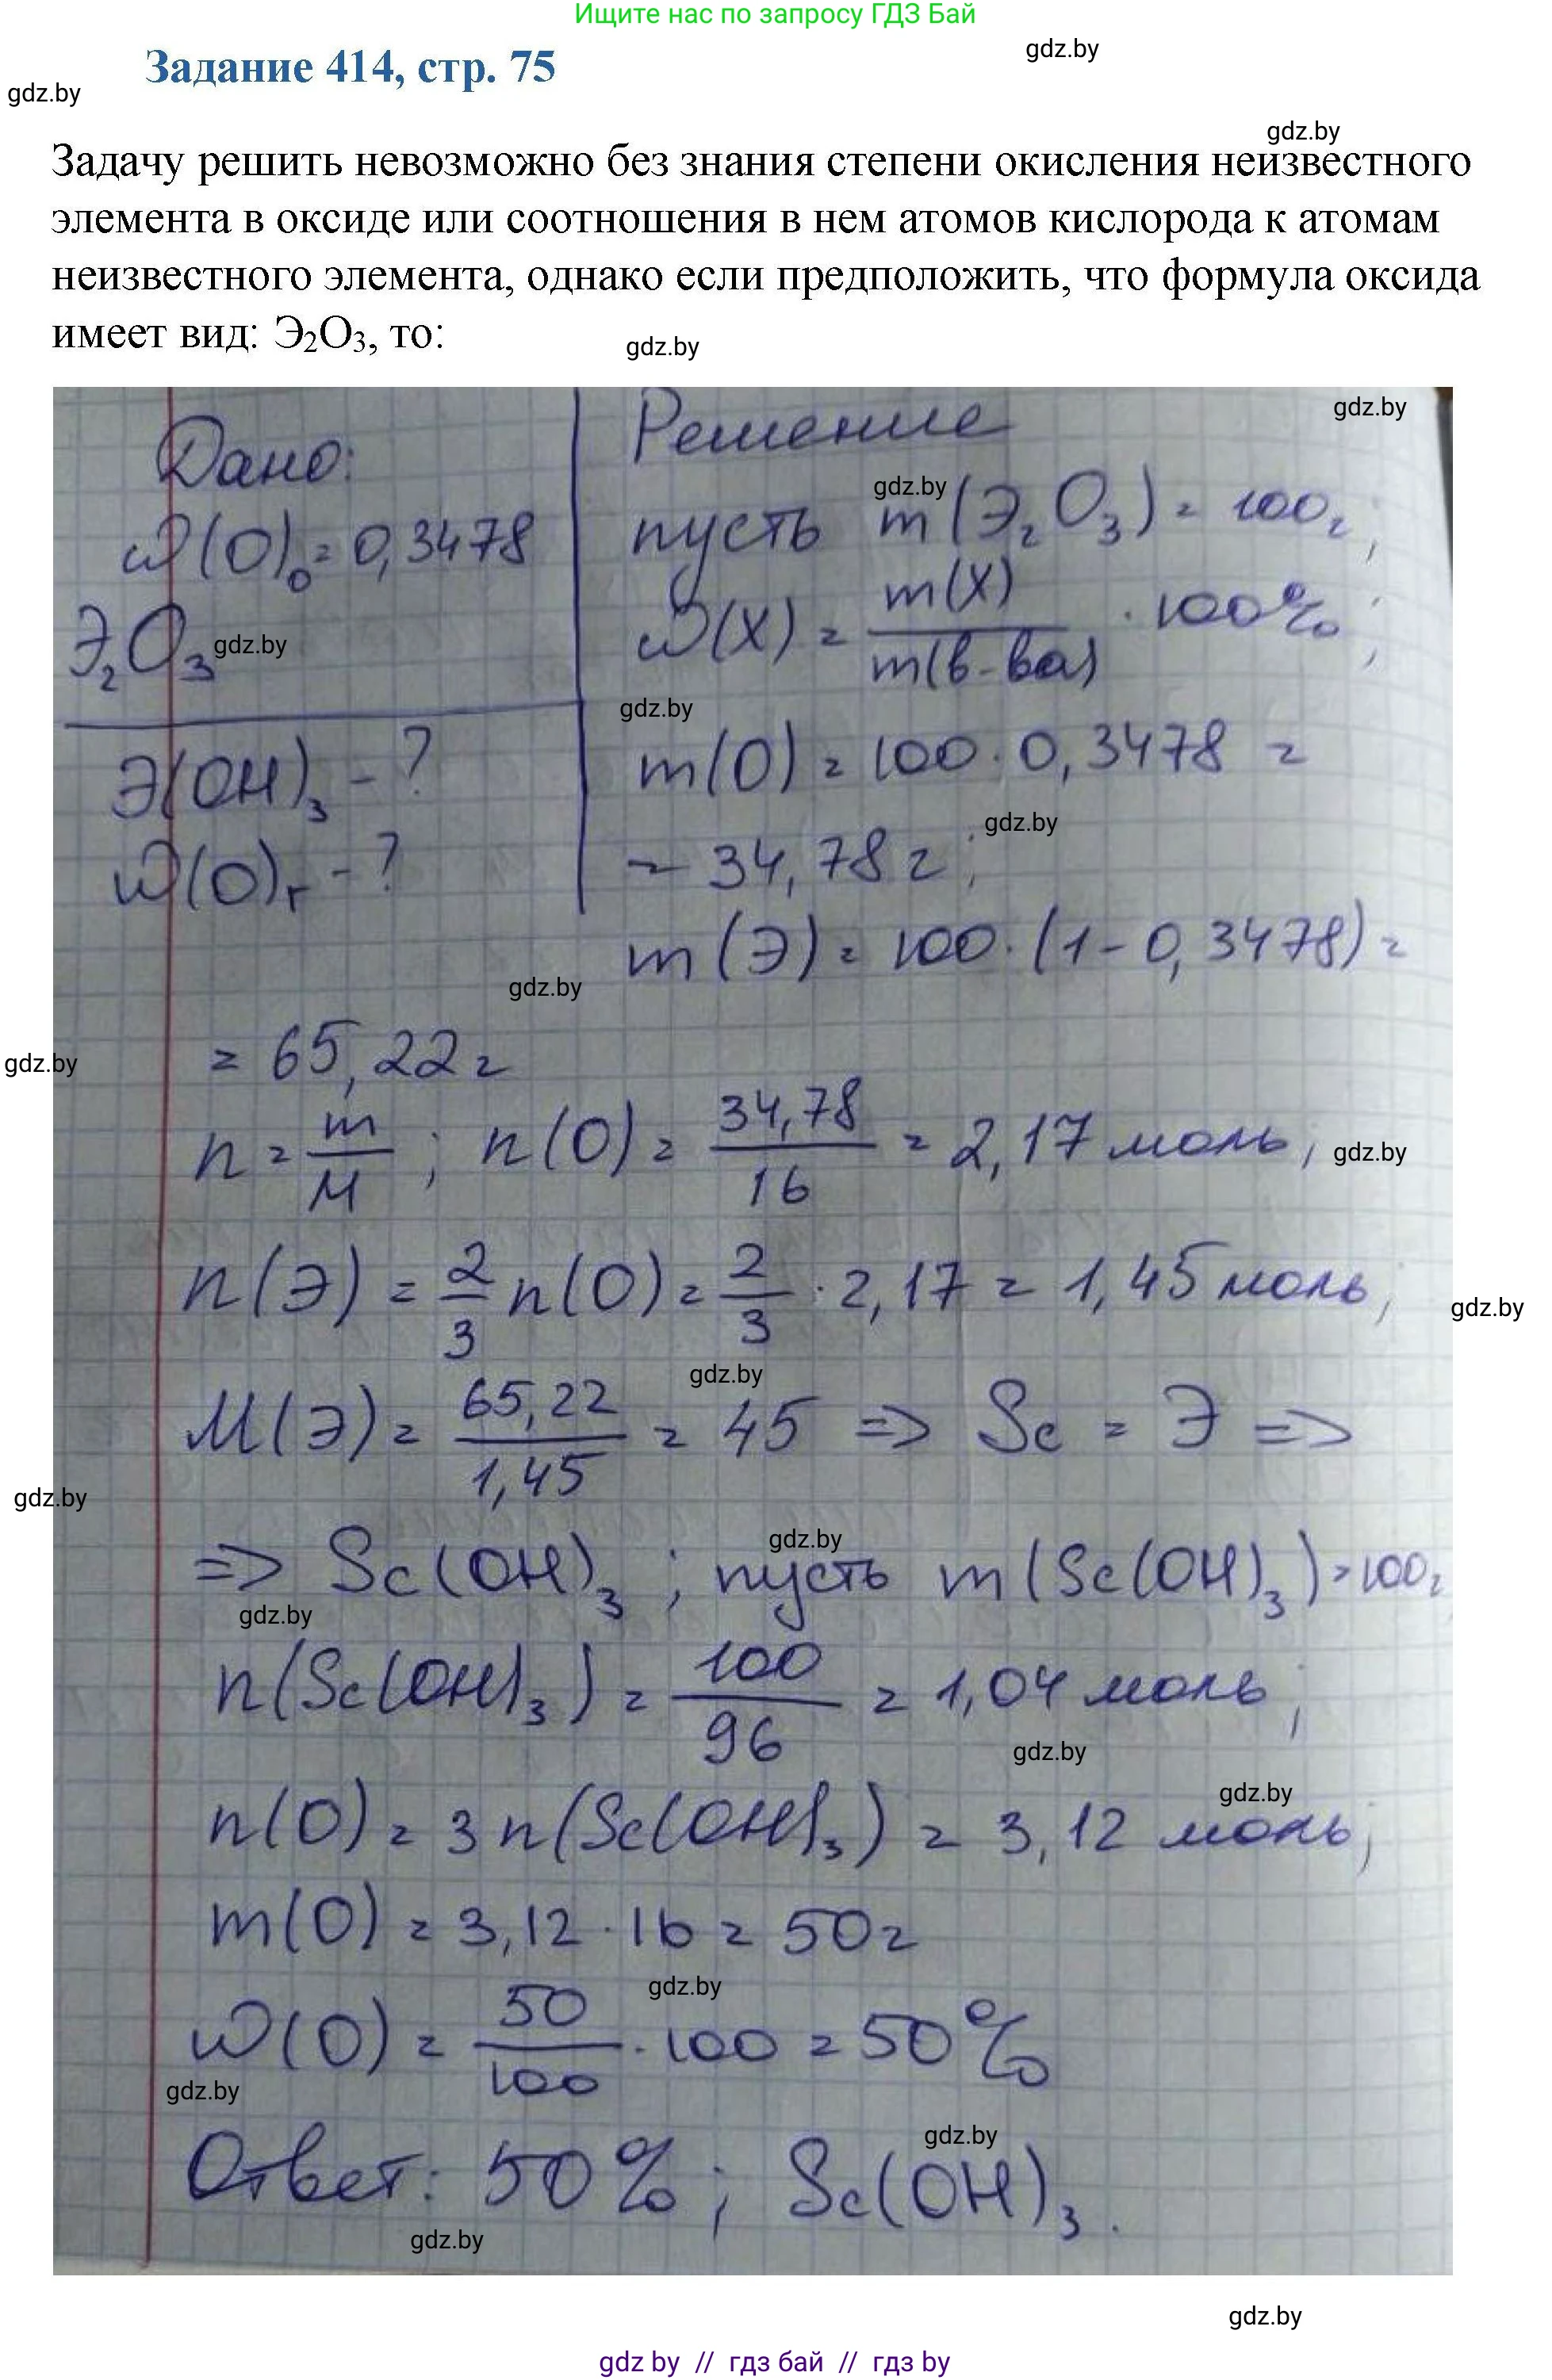 Ищите нас по запросу ГДЗ Бай
gdz.by
Задание 414, стр. 75
gdz.by
gdz.by
Задачу решить невозможно без знания степени окисления неизвестного
элемента в оксиде или соотношения в нем атомов кислорода к атомам
неизвестного элемента, однако если предположить, что формула оксида
имеет вид: Э₂О₃, то:
gdz.by
gdz.by
Дано:
ω(O)₀ = 0,3478
Э₂O₃
gdz.by
Э(OH)₃ - ?
ω(O)г - ?
Решение
gdz.by
пусть m(Э₂O₃) = 100г;
ω(X) = m(X)/m(в-ва) · 100%;
gdz.by
m(O) = 100 · 0,3478 =
gdz.by
= 34,78 г;
m(Э) = 100 · (1 - 0,3478) =
gdz.by
gdz.by
= 65,22 г
n = m/M; n(O) = 34,78/16 = 2,17 моль;
gdz.by
n(Э) = 2/3 n(O) = 2/3 · 2,17 = 1,45 моль;
gdz.by
gdz.by
M(Э) = 65,22/1,45 = 45 => Sc = Э =>
gdz.by
gdz.by
=> Sc(OH)₃; пусть m(Sc(OH)₃) = 100г
gdz.by
n(Sc(OH)₃) = 100/96 = 1,04 моль;
gdz.by
gdz.by
n(O) = 3n(Sc(OH)₃) = 3,12 моль;
m(O) = 3,12 · 16 = 50г
gdz.by
ω(O) = 50/100 · 100 = 50%
gdz.by
gdz.by
Ответ: 50%; Sc(OH)₃.
gdz.by
gdz.by
gdz by // гдз бай // гдз by